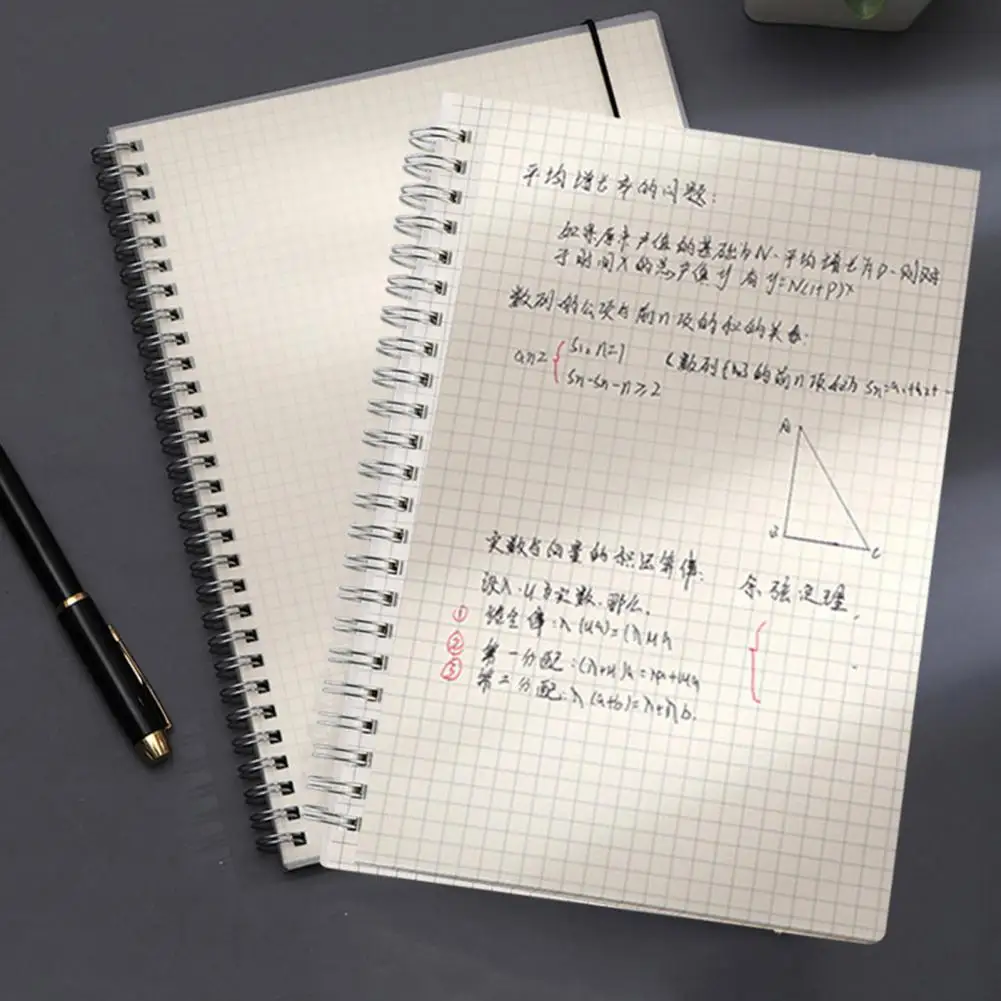 平均增长率的问题:
如果原来产值的基础为N·平均增长为P·则对
于时间x的总产值y 有y=N(1+P)ˣ
数列的公项与前n项的和的关系:
an= { S1, n=1
Sn-Sn-n≥2
(数列{an}的前n项和为 Sn=a1+a2+…
A
B
C
实数与向量的积运算律:
余弦定理
设λ·u为实数·那么,
① 结合律:λ(ua)=(λua
② 第一分配:(λ+u)a=λa+ua
③ 第二分配:λ(a+b)=λ+λb.